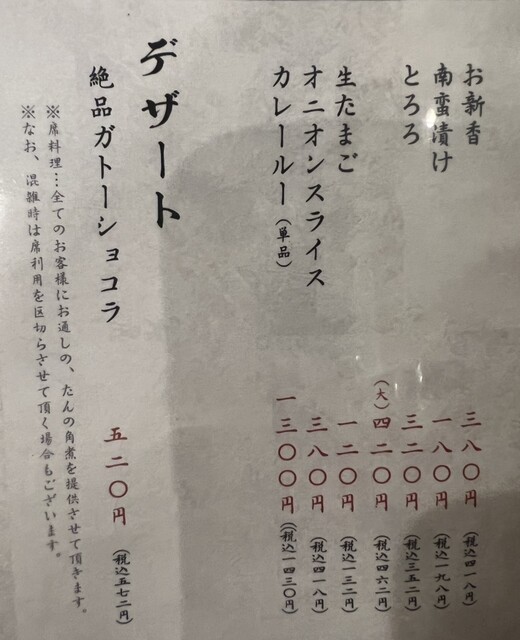 お新香 三八〇円 (税込四一八円)
南蛮漬け 一八〇円 (税込一九八円)
とろろ 三二〇円 (税込三五二円)
(大)四二〇円 (税込四六二円)
生たまご 一二〇円 (税込一三二円)
オニオンスライス 三八〇円 (税込四一八円)
カレールー(単品) 一三〇〇円 ((税込一四三〇円)
デザート
絶品ガトーショコラ 五二〇円 (税込五七二円)
※席料理…全てのお客様にお通しの、たんの角煮を提供させて頂きます。
※なお、混雑時は席利用を区切らさせて頂く場合もございます。